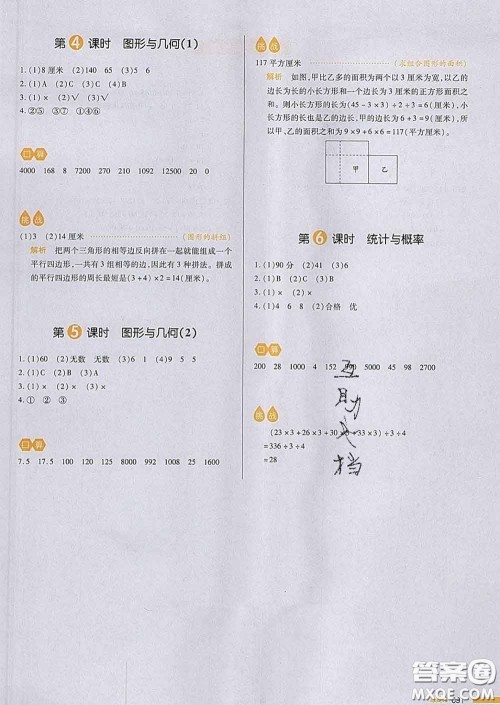 第4课时 图形与几何(1)
1. (1)8厘米 (2)140 65 (5)5 6
2. (1)C (2)B (3)A
3. (1)× (2)√ (3)√
4. ②⑤①④③
口算
4000 168 8 7200 270 210 1092 12500 20 0
挑战
(1)3 (2)14厘米 (图形的拼组)
解析 把两个三角形的相等边反向拼在一起就能组成一个
平行四边形,一共有3组相等的边,因此有3种拼法。拼成
的平行四边形的周长最短是(3+4)×2=14(厘米)。
第5课时 图形与几何(2)
1. (1)60 (2)无数 无数 (3)1 (4)9 5 5
2. (1)C (2)B (3)A
3. (1)× (2)√ (3)×
4. ① ② ③
口算
7.5 17.5 100 120 125 8000 992 1008 25 1600
挑战
117平方厘米 (求组合图形的面积)
解析 如图,甲比乙多的面积为两个以3厘米为宽、以乙的
边长为长的小长方形和一个边长为3厘米的正方形的面积
和。则小长方形的长为(45-3×3)÷2÷3=6(厘米),
小长方形的长也是乙的边长,甲的边长为6+3=9(厘米),
所以甲、乙的面积之和为9×9+6×6=117(平方厘米)。
甲 乙
第6课时 统计与概率
1. (1)90分 (2)41 (3)6
2. (1)B (2)C
3. (1)× (2)√
4. (1)4 6 8 (2)合格 优
口算
200 28 8000 1000 4 152 5000 45 98 2700
挑战
(23×3+26×3+30×3+33×3)÷3÷4
=336÷3÷4
=28
互
助
文
档
答案圈
MXQE.COM
031